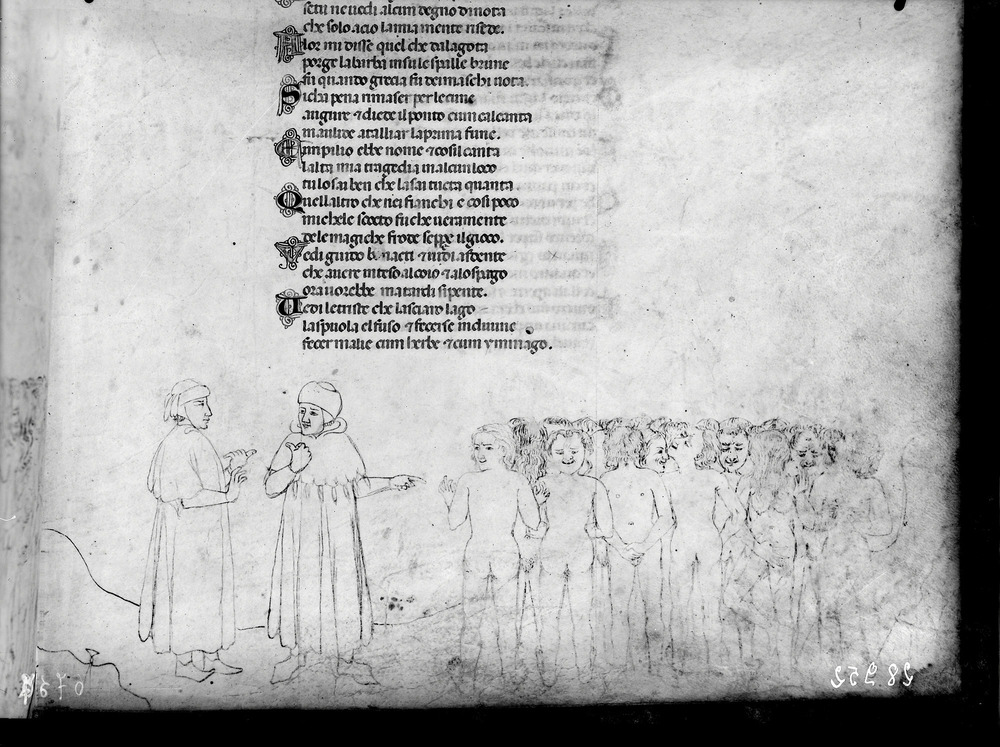 setu ne uedi alcun degno dinota
che solo acio lamia mente risede.
Alor mi disse quel che dalagota
porge labarba insule spalle brune
fu quando grecia fu demaschi uota.
Sicha pena rimaser perlecune
augure ⁊ diede il ponto cum calcanta
inaulide atalliar laprima fune.
ebbe nome ⁊ cosil canta
lalta mia tragedia inalcun loco
tu losai ben che lasai tucta quanta
Quellaltro che nei fianchi e cosi poco
michele scocto fu che ueramente
dele magiche frode seppe ilgioco.
Vedi guido bonacti ⁊ uidi asdente
che auere inteso alcoio ⁊ alospago
ora uorebbe ma tardi sipente.
Vedi letriste che lasciaro lago
laspuola elfuso ⁊ fecerse indiuine
fecer malie cum herbe ⁊ cum ymmago.